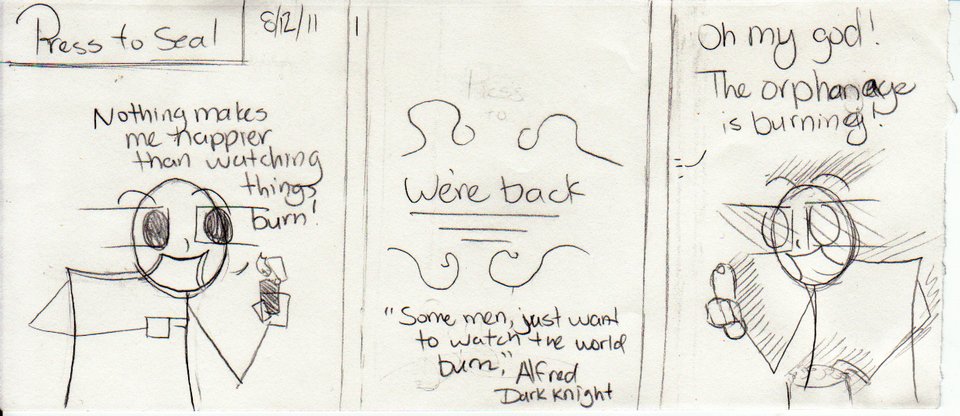 Press to Seal
8/12/11
Nothing makes
me happier
than watching
things
burn!
Press
to
We're back
"Some men, just want
to watch the world
burn,"
Alfred
Dark Knight
Oh my god!
The orphanage
is burning!